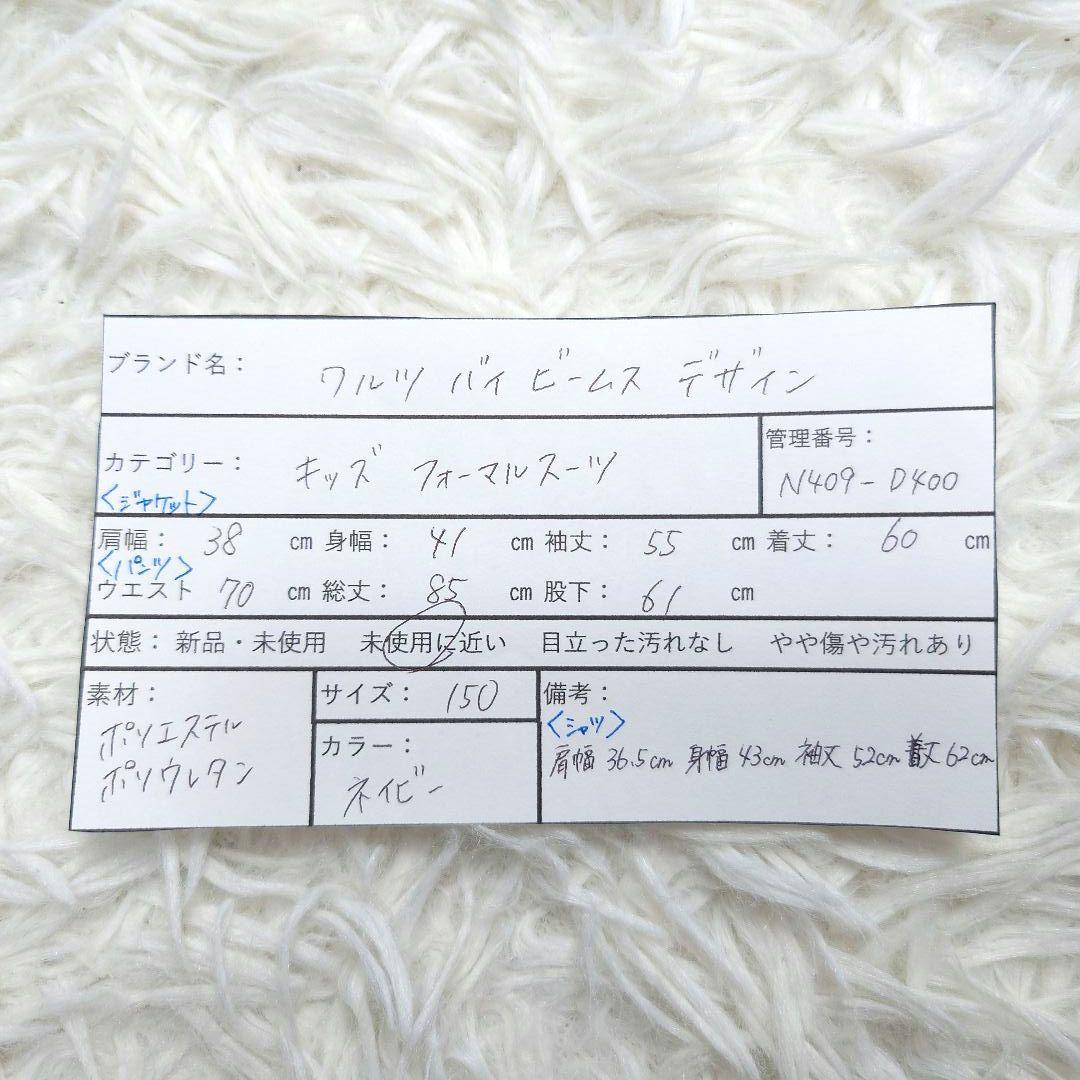 ブランド名： ワルツ バイ ビームス デザイン
カテゴリー： キッズ フォーマルスーツ
管理番号：
N409-D400
＜ジャケット＞
肩幅： 38 cm 身幅： 41 cm 袖丈： 55 cm 着丈： 60 cm
＜パンツ＞
ウエスト 70 cm 総丈： 85 cm 股下： 61 cm
状態： 新品・未使用 未使用に近い 目立った汚れなし やや傷や汚れあり
素材：
ポリエステル
ポリウレタン
サイズ： 150
カラー：
ネイビー
備考：
＜シャツ＞
肩幅 36.5cm 身幅 43cm 袖丈 52cm 着丈 62cm